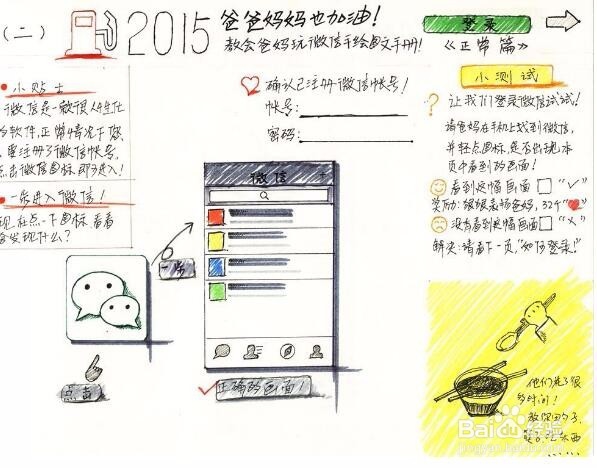 （二）
2015 爸爸妈妈也加油！
教会爸妈玩微信手绘图文手册！
登录
《正常篇》
小贴士
微信是一款很人性化
的软件，正常情况下您
要注册了微信帐号，
点击微信图标即可进入！
一步进入微信！
现在点一下图标看看
会发现什么？
点击
一步
确认已注册微信帐号！
帐号：
密码：
微信
正确的画面！
小测试
让我们登录微信试试！
请爸妈在手机上找到微信，
并轻点图标，是否出现本
页中看到的画面！
看到这幅画面 "✓"
奖励：狠狠表扬爸妈，32个
没有看到这幅画面 "×"
解决：请看下一页，"如何登录！"
他们花了很
的时间！
教你用勺子，
东西
......
Baidu经验